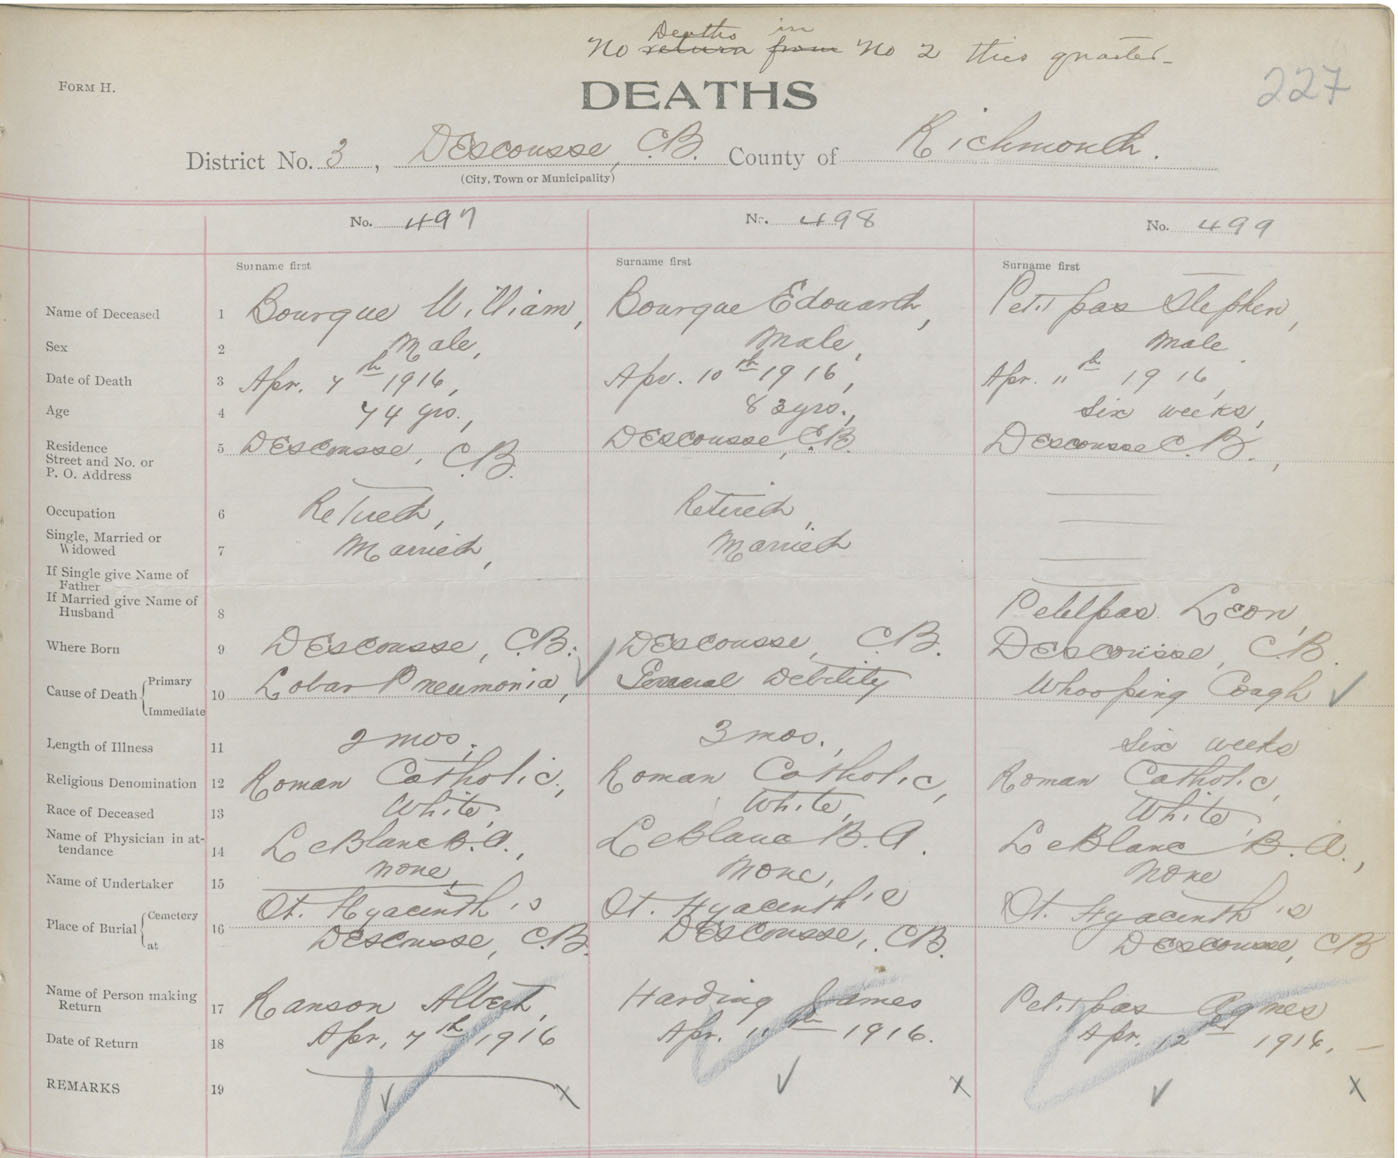 Deaths in
No return from No 2 this quarter
FORM H.
DEATHS
227
District No. 3, Descousse, C.B. County of Richmond.
(City, Town or Municipality)
No. 497 No. 498 No. 499
Surname first Surname first Surname first
Name of Deceased 1 Bourque William, Bourque Edouard, Petitpas Stephen,
Sex 2 Male, Male, Male
Date of Death 3 Apr. 7th 1916, Apr. 10th 1916, Apr. 11th 1916,
Age 4 74 yrs., 83 yrs., Six weeks,
Residence
Street and No. or
P. O. Address 5 Descousse, C.B. Descousse, C.B. Descousse C.B.,
Occupation 6 Retired, Retired,
Single, Married or
Widowed 7 Married, Married
If Single give Name of
Father
If Married give Name of
Husband 8 Petitpas Leon,
Where Born 9 Descousse, C.B. Descousse, C.B. Descousse, C.B.
Cause of Death Primary
Immediate 10 Lobar Pneumonia, General Debility Whooping Cough
Length of Illness 11 2 mos., 3 mos., Six weeks
Religious Denomination 12 Roman Catholic, Roman Catholic, Roman Catholic,
Race of Deceased 13 White, White, White,
Name of Physician in at-
tendance 14 LeBlanc B.A., LeBlanc B.A. LeBlanc B.A.,
Name of Undertaker 15 None, None, None
Place of Burial Cemetery
at 16 St. Hyacinth's St. Hyacinth's St. Hyacinth's
Descousse, C.B. Descousse, C.B. Descousse, CB
Name of Person making
Return 17 Ranson Albert, Harding James Petitpas Agnes
Date of Return 18 Apr. 7th 1916 Apr. 11th 1916. Apr. 12 1916.
REMARKS 19